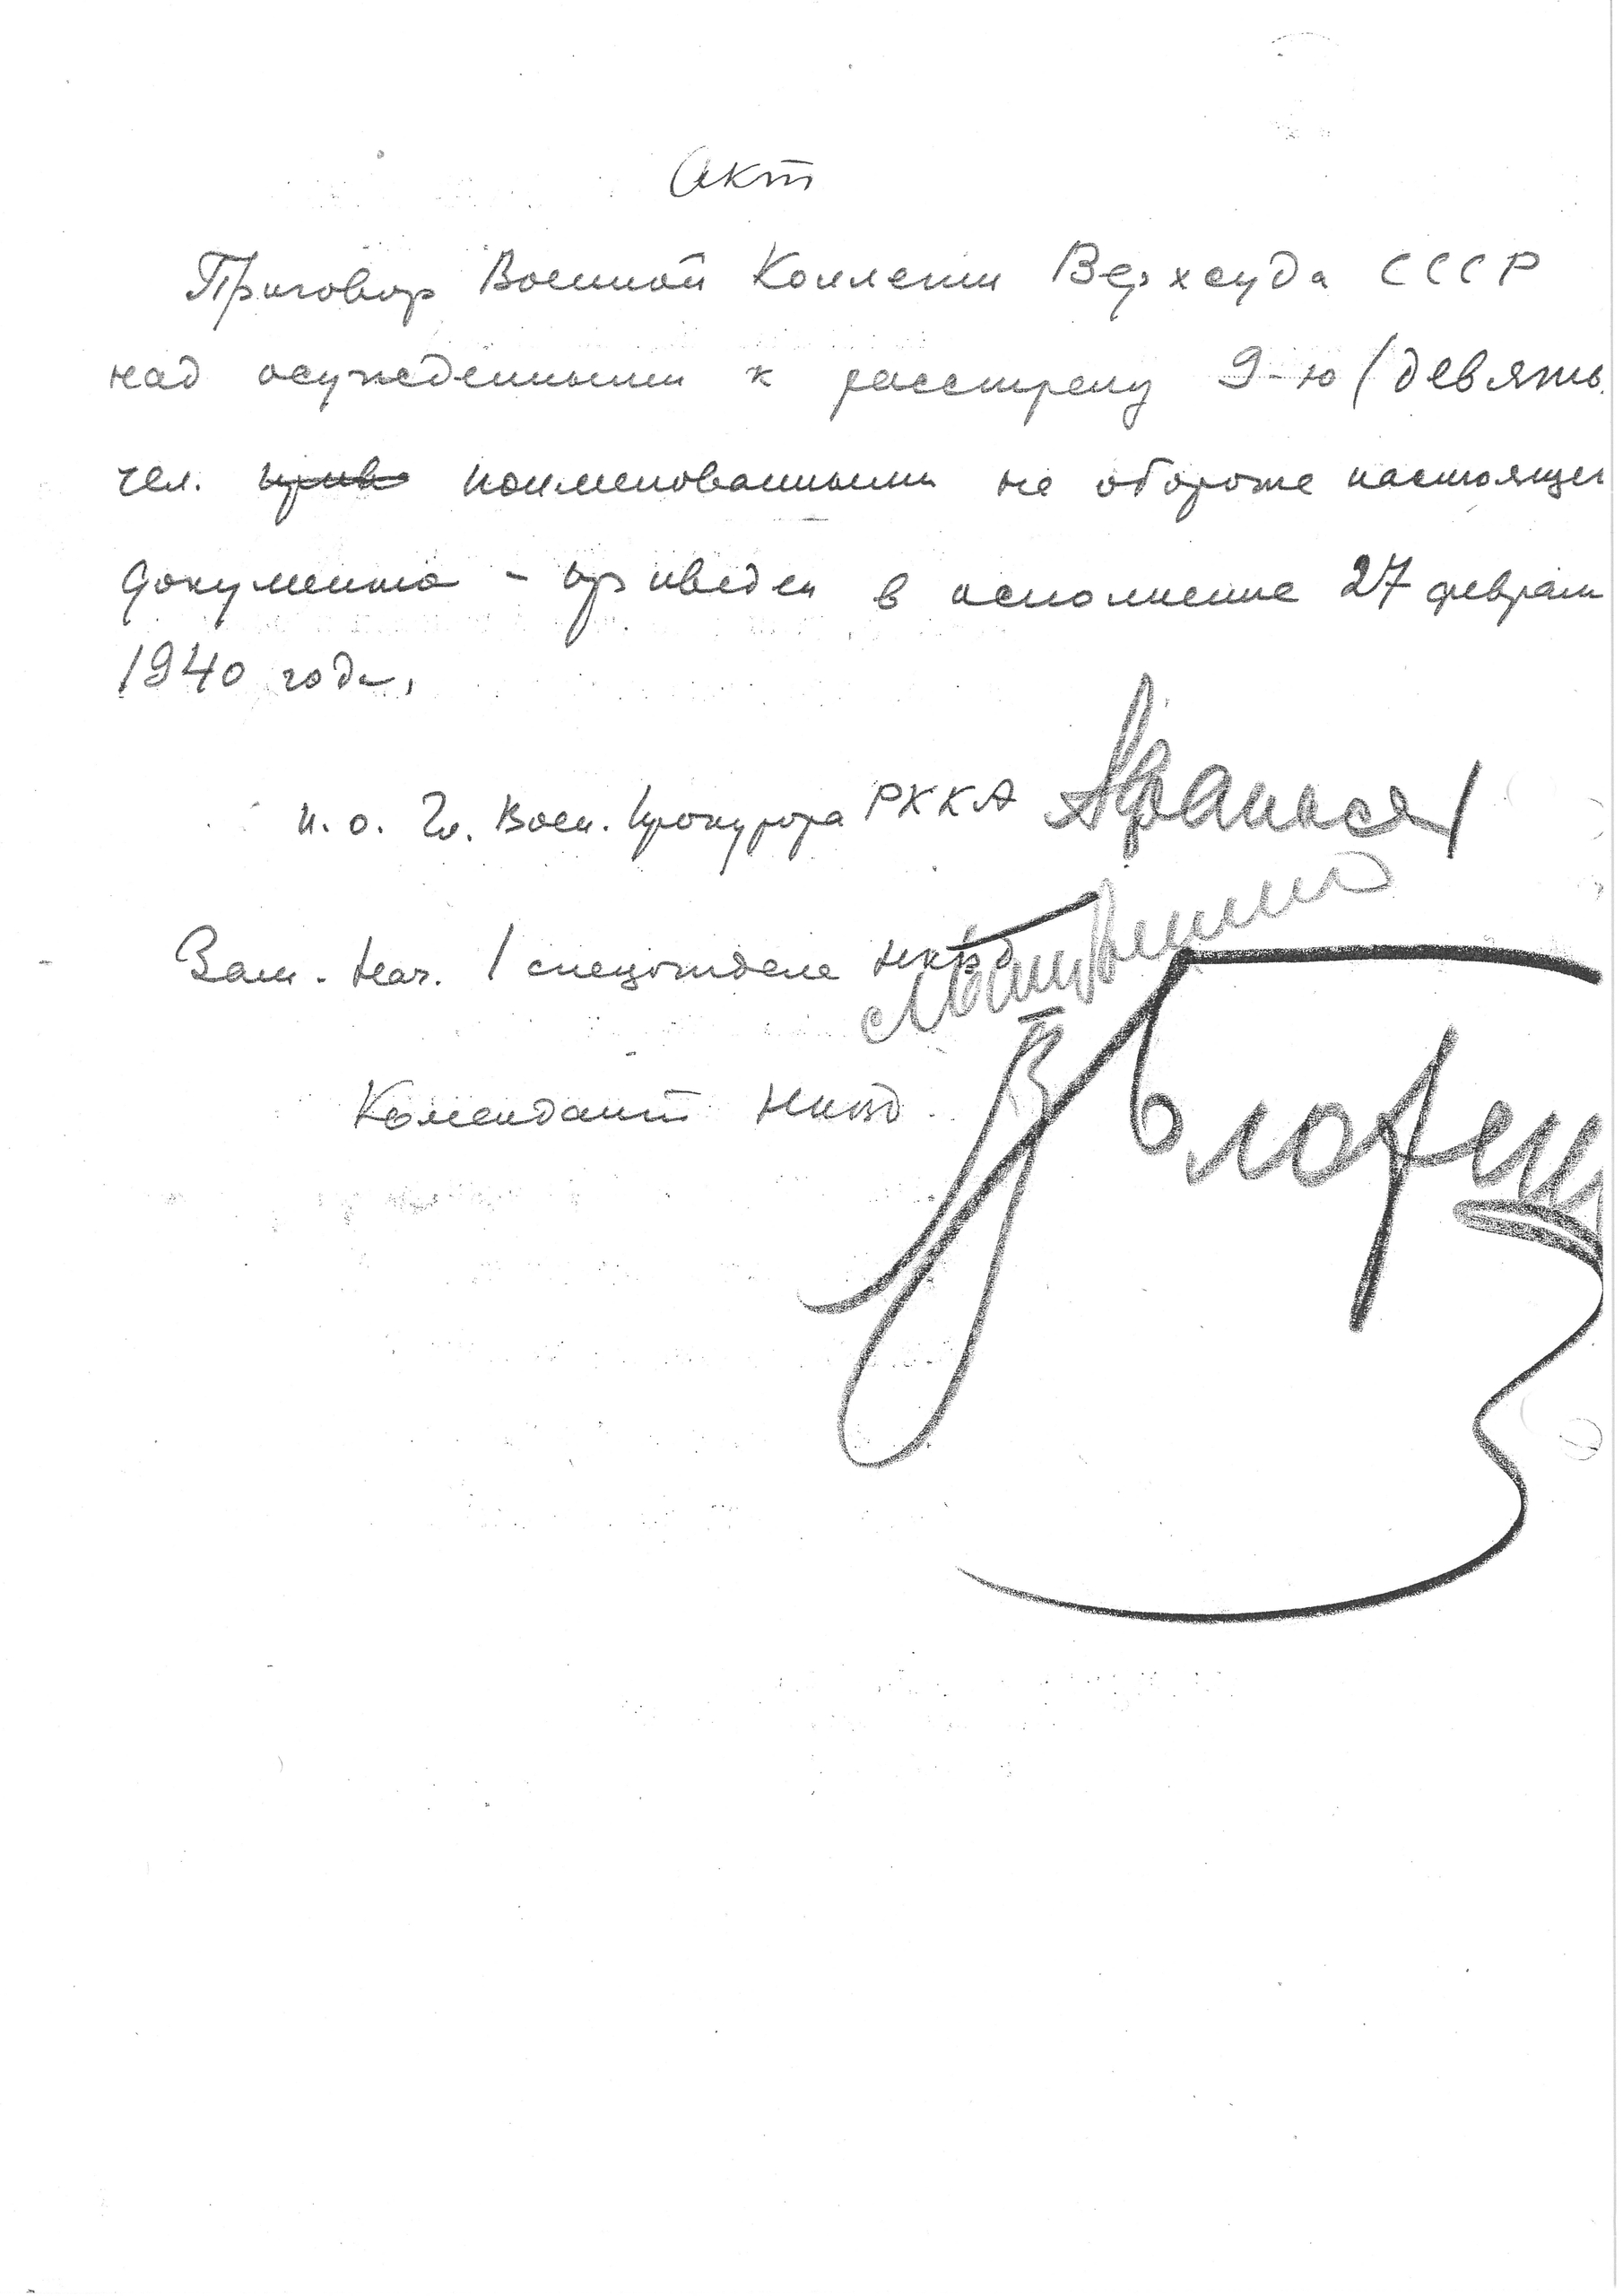 Акт
Приговор Военной Коллегии Верхсуда СССР
над осужденными к расстрелу 9-ю (девять
чел. поименованными на обороте настояще
документа - приведен в исполнение 27 февраля
1940 года.
и. о. Гл. Воен. Прокурора РККА Афанасьев
Зам. Нач. 1 спецотдела НКВД
Комендант НКВД В Блохин